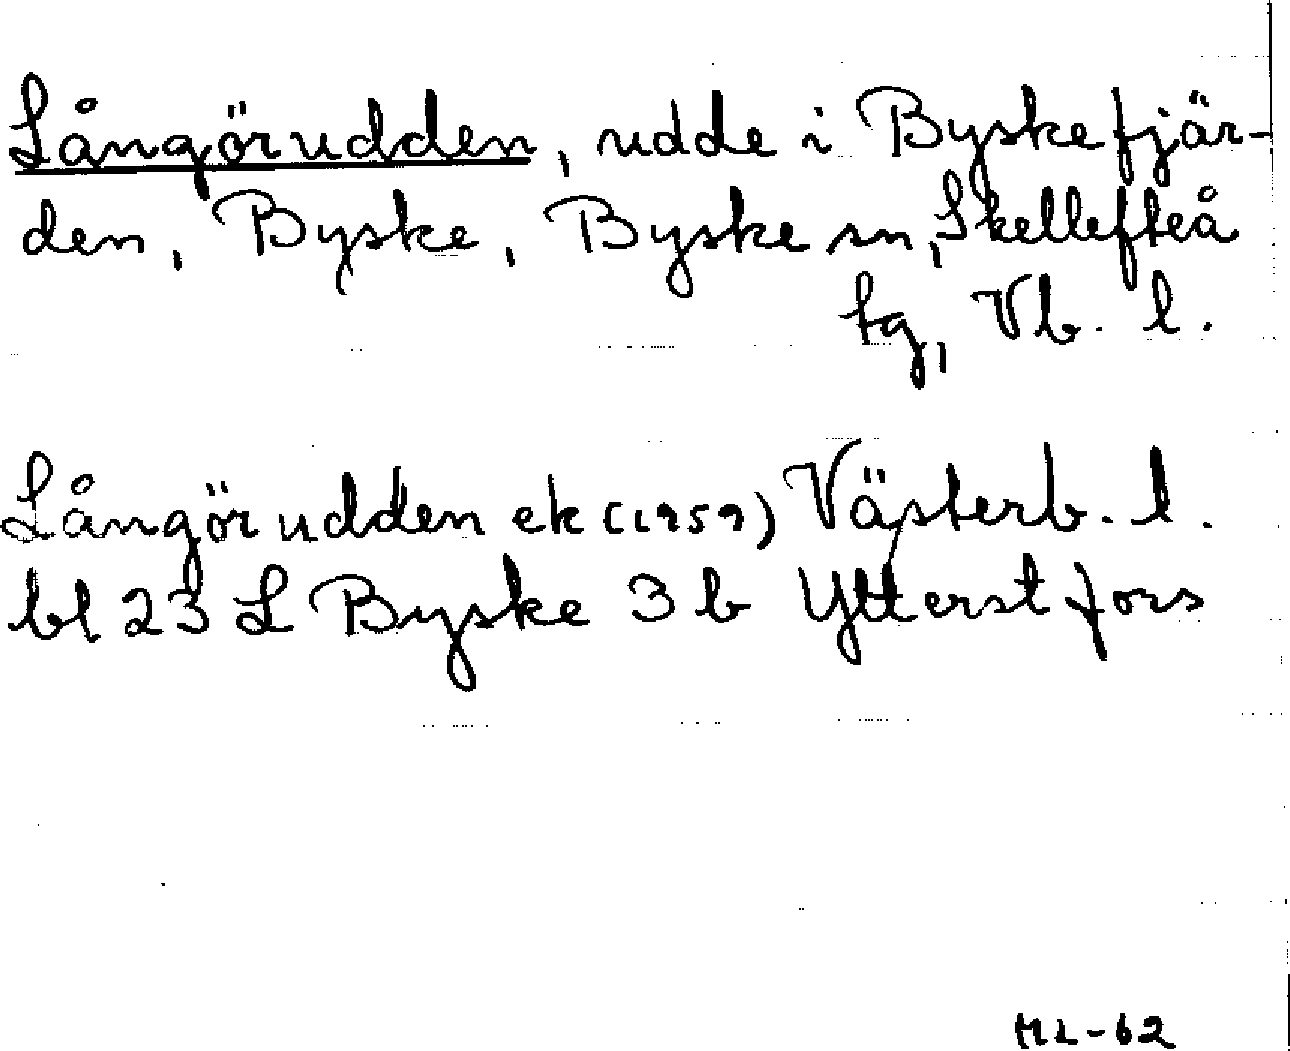 Långörudden, udde i Byskefjär-
den, Byske, Byske sn, Skellefteå
tg, Vb. l.
Långörudden ek (1959) Västerb. l.
bl 23 L Byske 3 b Ytterstfors
ML-62